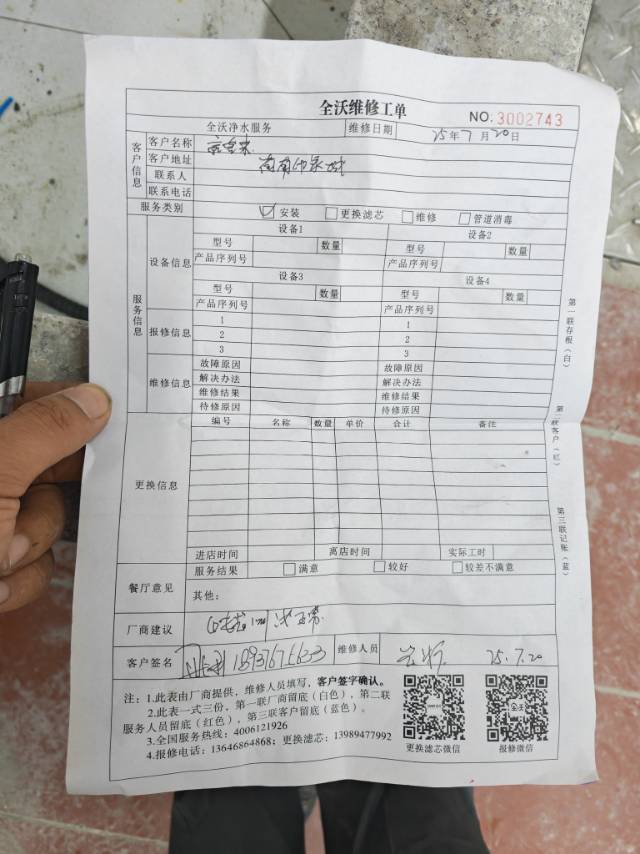 全沃维修工单
NO.3002743
全沃净水服务 维修日期 25年7月20日
客户信息
客户名称
客户地址
联系人
联系电话
服务类别 安装 更换滤芯 维修 管道消毒
服务信息
设备信息
设备1 设备2
型号 数量 型号 数量
产品序列号 产品序列号
设备3 设备4
型号 数量 型号 数量
产品序列号 产品序列号
报修信息
1 1
2 2
3 3
维修信息
故障原因 故障原因
解决办法 解决办法
维修结果 维修结果
待修原因 待修原因
更换信息
编号 名称 数量 单价 合计 备注
进店时间 离店时间 实际工时
餐厅意见
服务结果 满意 较好 较差不满意
其他:
厂商建议 正常
客户签名 维修人员 25.7.20
注:1.此表由厂商提供,维修人员填写,客户签字确认。
2.此表一式三份,第一联厂商留底(白色),第二联
服务人员留底(红色),第三联客户留底(蓝色)。
3.全国服务热线:4006121926
4.报修电话:13646864868;更换滤芯:13989477992
更换滤芯微信 报修微信
全沃
第一联存根(白)
第二联客户(红)
第三联记账(蓝)